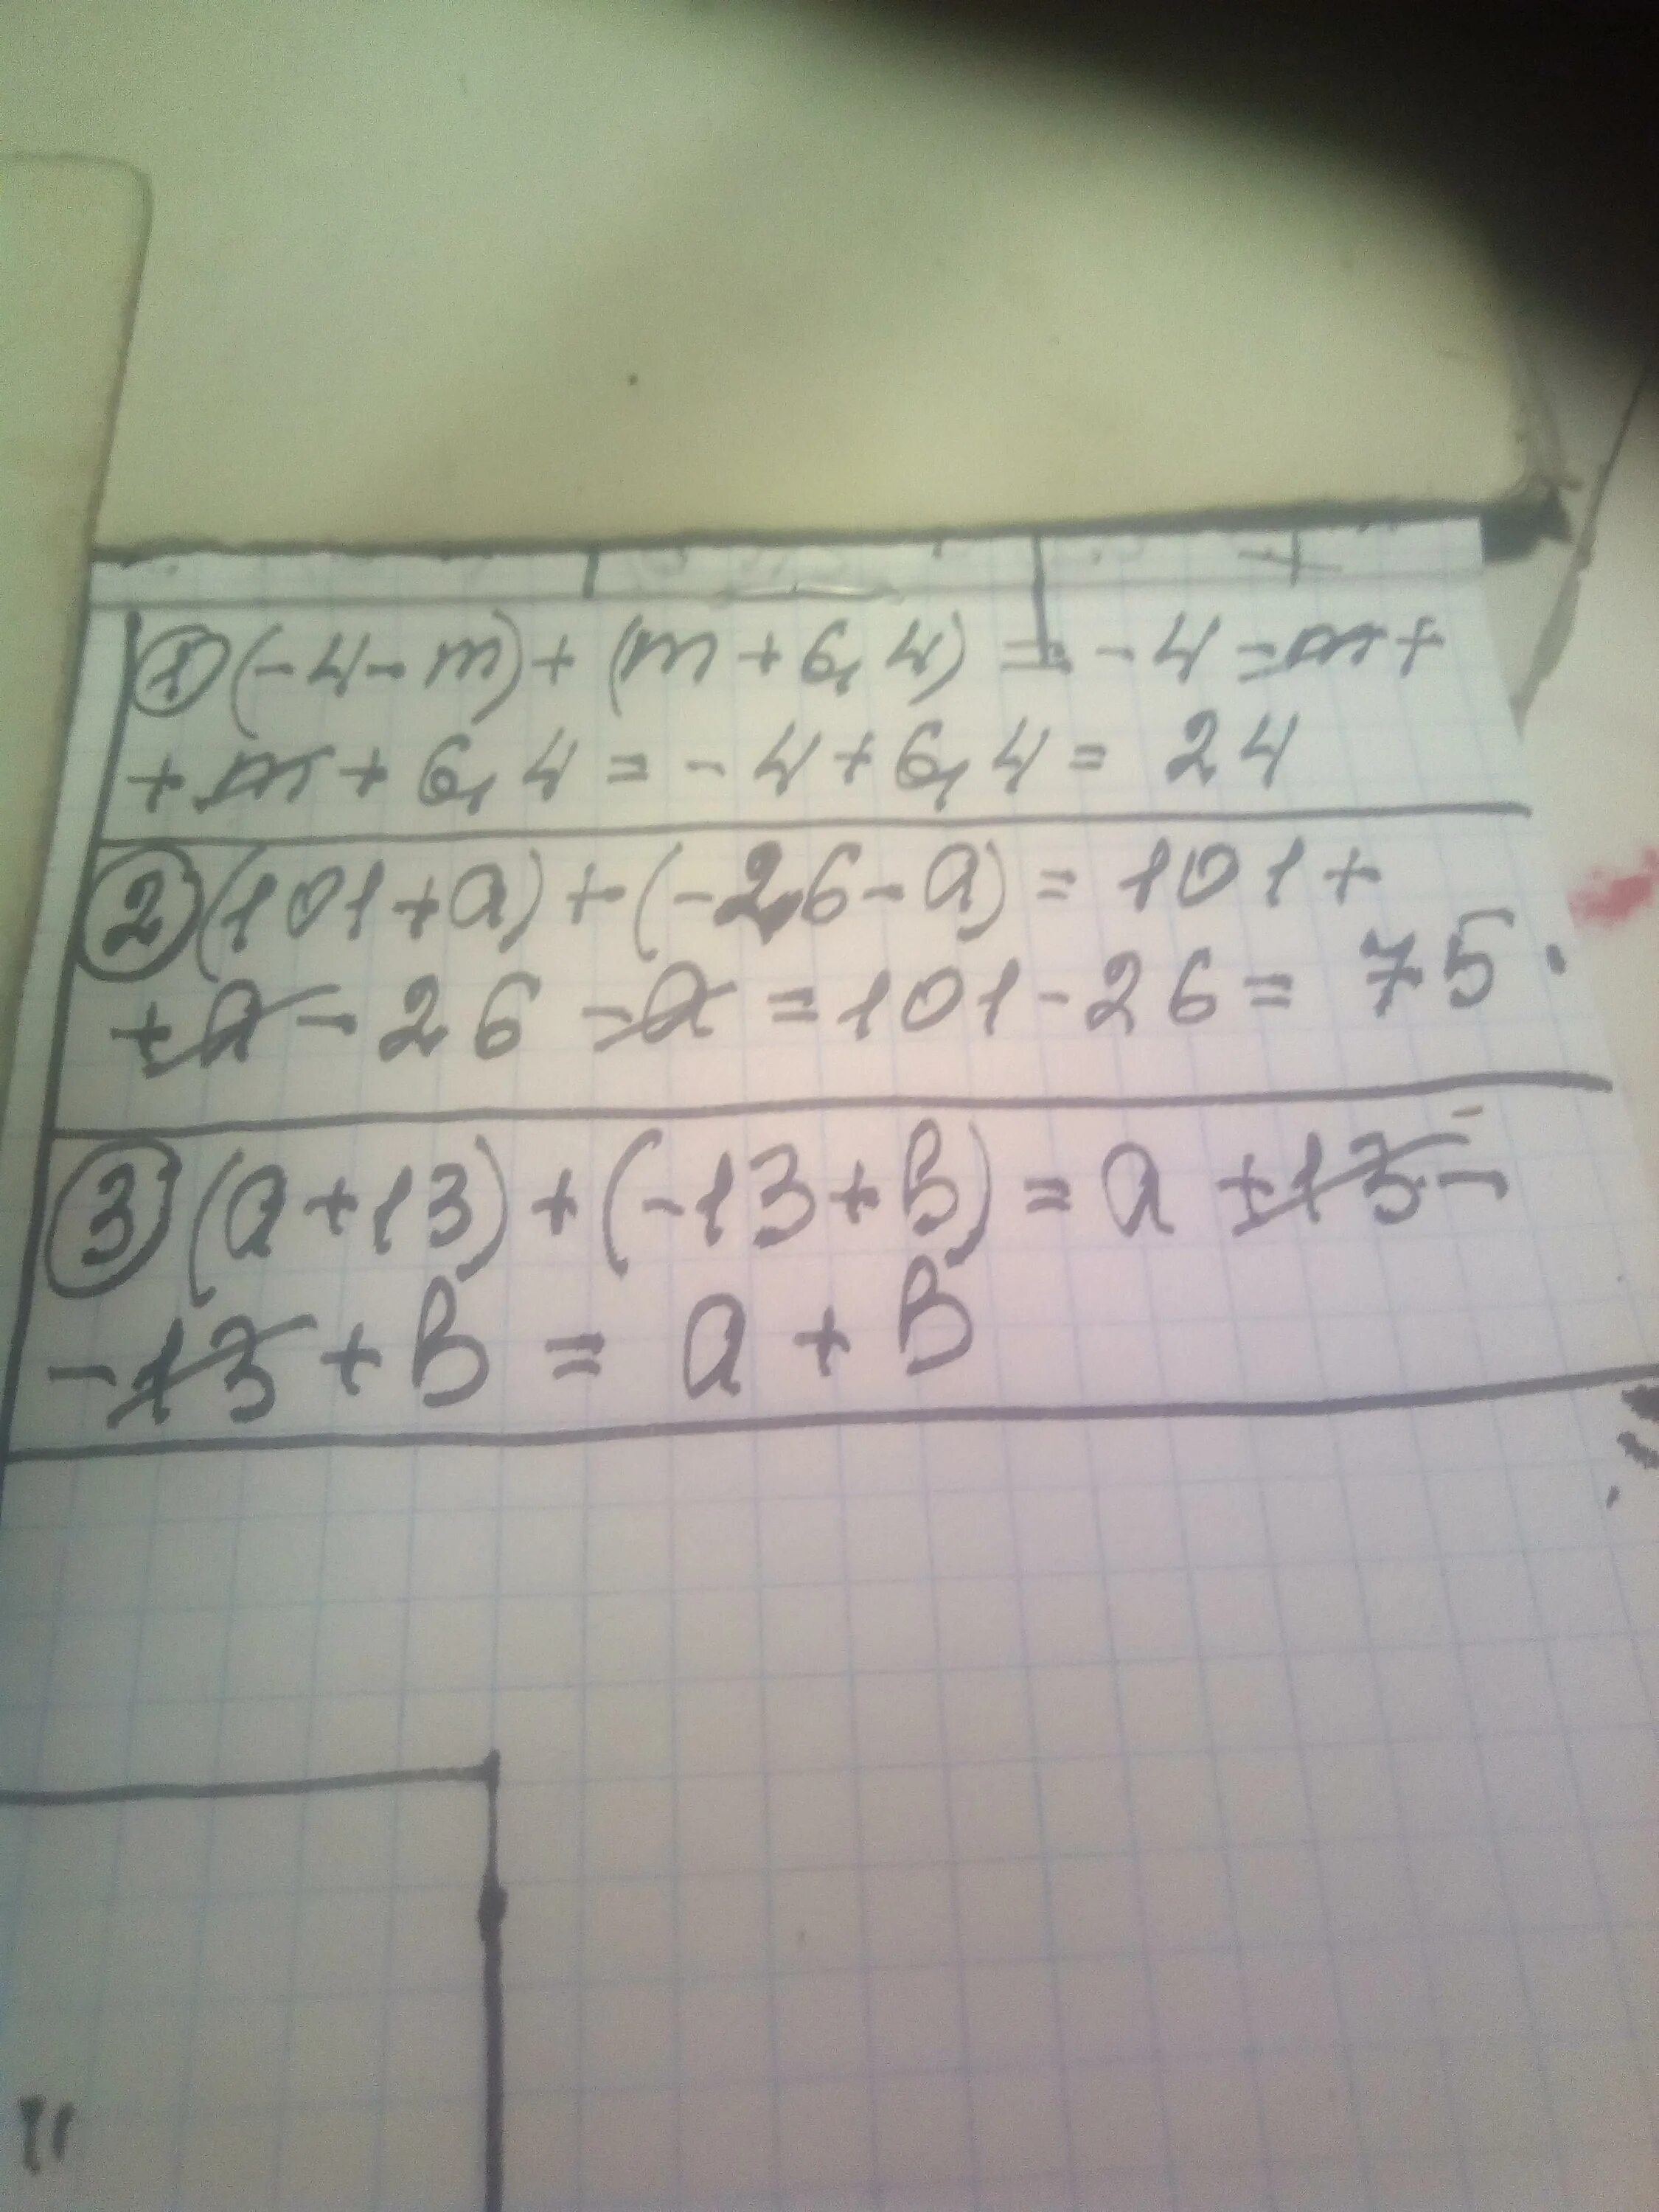 ① (-4-m)+(m+6,4)=-4-m+
+m+6,4=-4+6,4=24
② (101+a)+(-26-a)=101+
+a-26-a=101-26=75.
③ (a+13)+(-13+B)=a+13-
-13+B=a+B